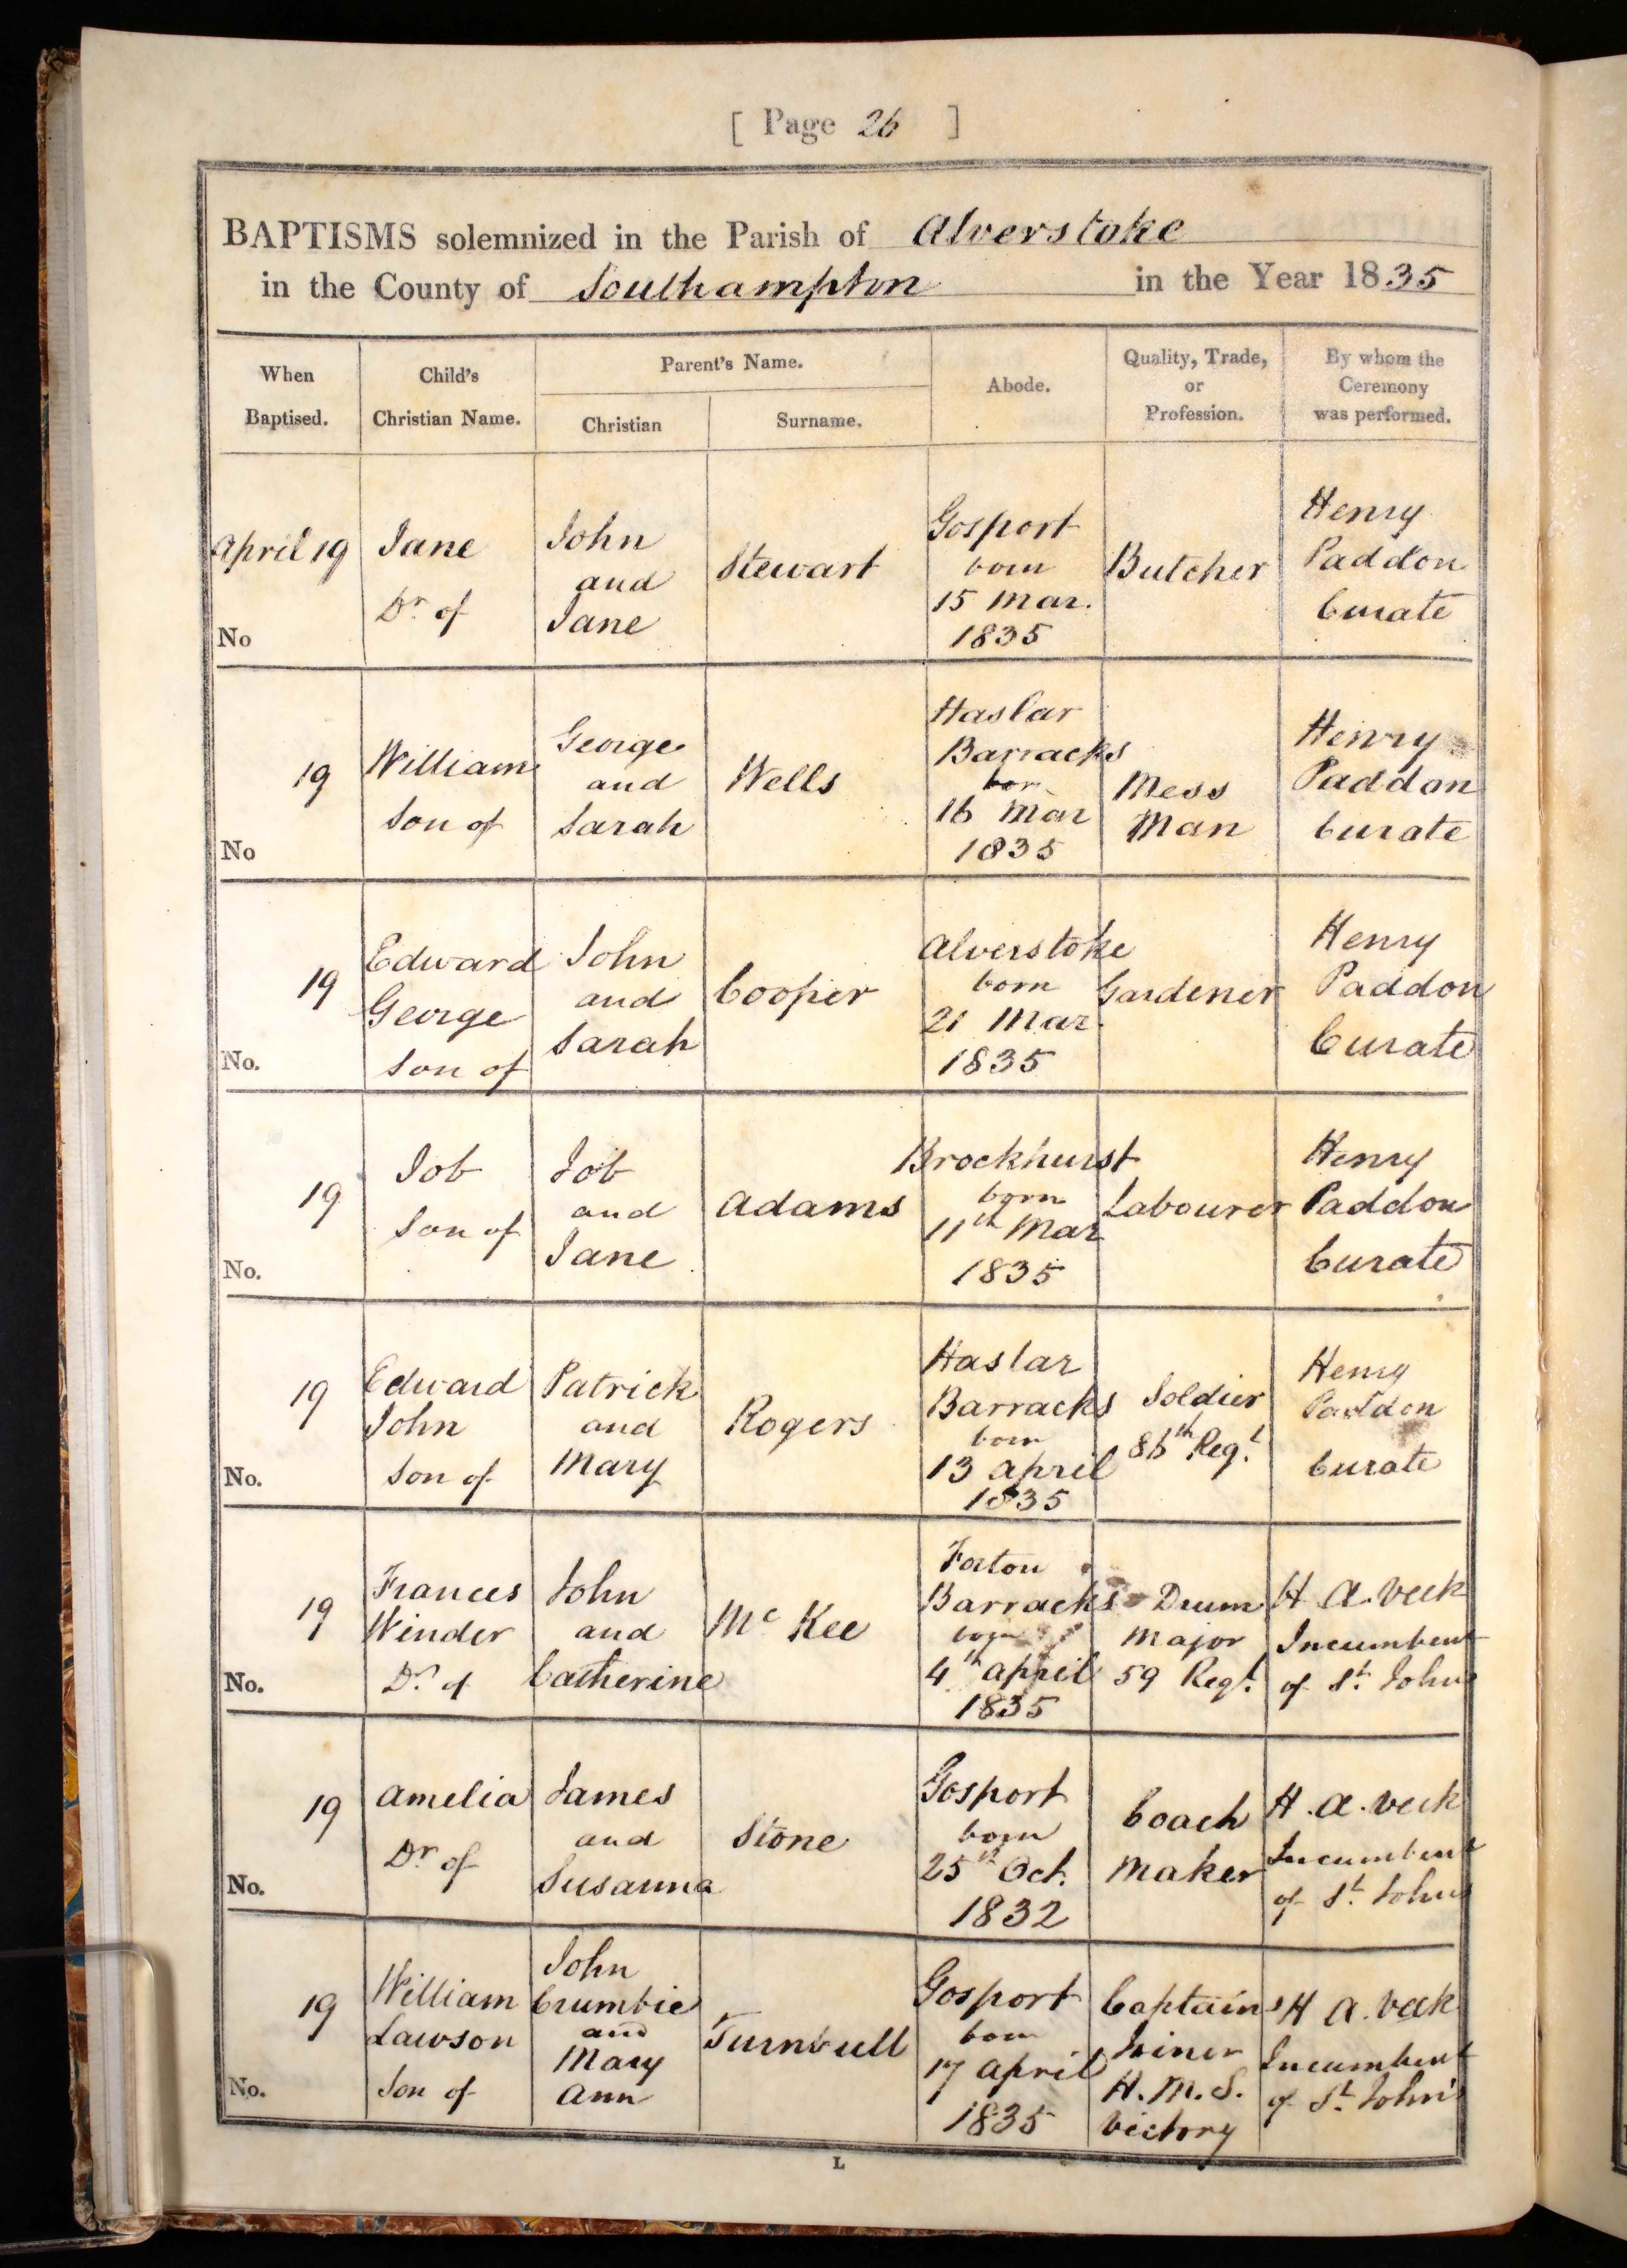 [ Page 26 ]
BAPTISMS solemnized in the Parish of Alverstoke
in the County of Southampton in the Year 1835
When Baptised.
Child's Christian Name.
Parent's Name.
Christian
Surname.
Abode.
Quality, Trade, or Profession.
By whom the Ceremony was performed.
April 19
No
Jane
Dr. of
John
and
Jane
Stewart
Gosport
born
15 Mar.
1835
Butcher
Henry
Paddon
Curate
19
No
William
Son of
George
and
Sarah
Wells
Haslar
Barracks
born
16 Mar
1835
Mess
Man
Henry
Paddon
Curate
19
No.
Edward
George
Son of
John
and
Sarah
Cooper
Alverstoke
born
21 Mar.
1835
Gardener
Henry
Paddon
Curate
19
No.
Job
Son of
Job
and
Jane
Adams
Brockhurst
born
11th Mar
1835
Labourer
Henry
Paddon
Curate
19
No.
Edward
John
Son of
Patrick
and
Mary
Rogers
Haslar
Barracks
born
13 April
1835
Soldier
86th Regt.
Henry
Paddon
Curate
19
No.
Frances
Winder
Dr. of
John
and
Catherine
Mc Kee
Forton
Barracks
born
4th April
1835
Drum
Major
59 Regt.
H. A. Veck
Incumbent
of St. Johns
19
No.
Amelia
Dr. of
James
and
Susanna
Stone
Gosport
born
25th Oct.
1832
Coach
Maker
H. A. Veck
Incumbent
of St. Johns
19
No.
William
Lawson
Son of
John
Crumbie
and
Mary
Ann
Turnbull
Gosport
born
17 April
1835
Captain's
Joiner
H. M. S.
Victory
H. A. Veck
Incumbent
of St. John's
L